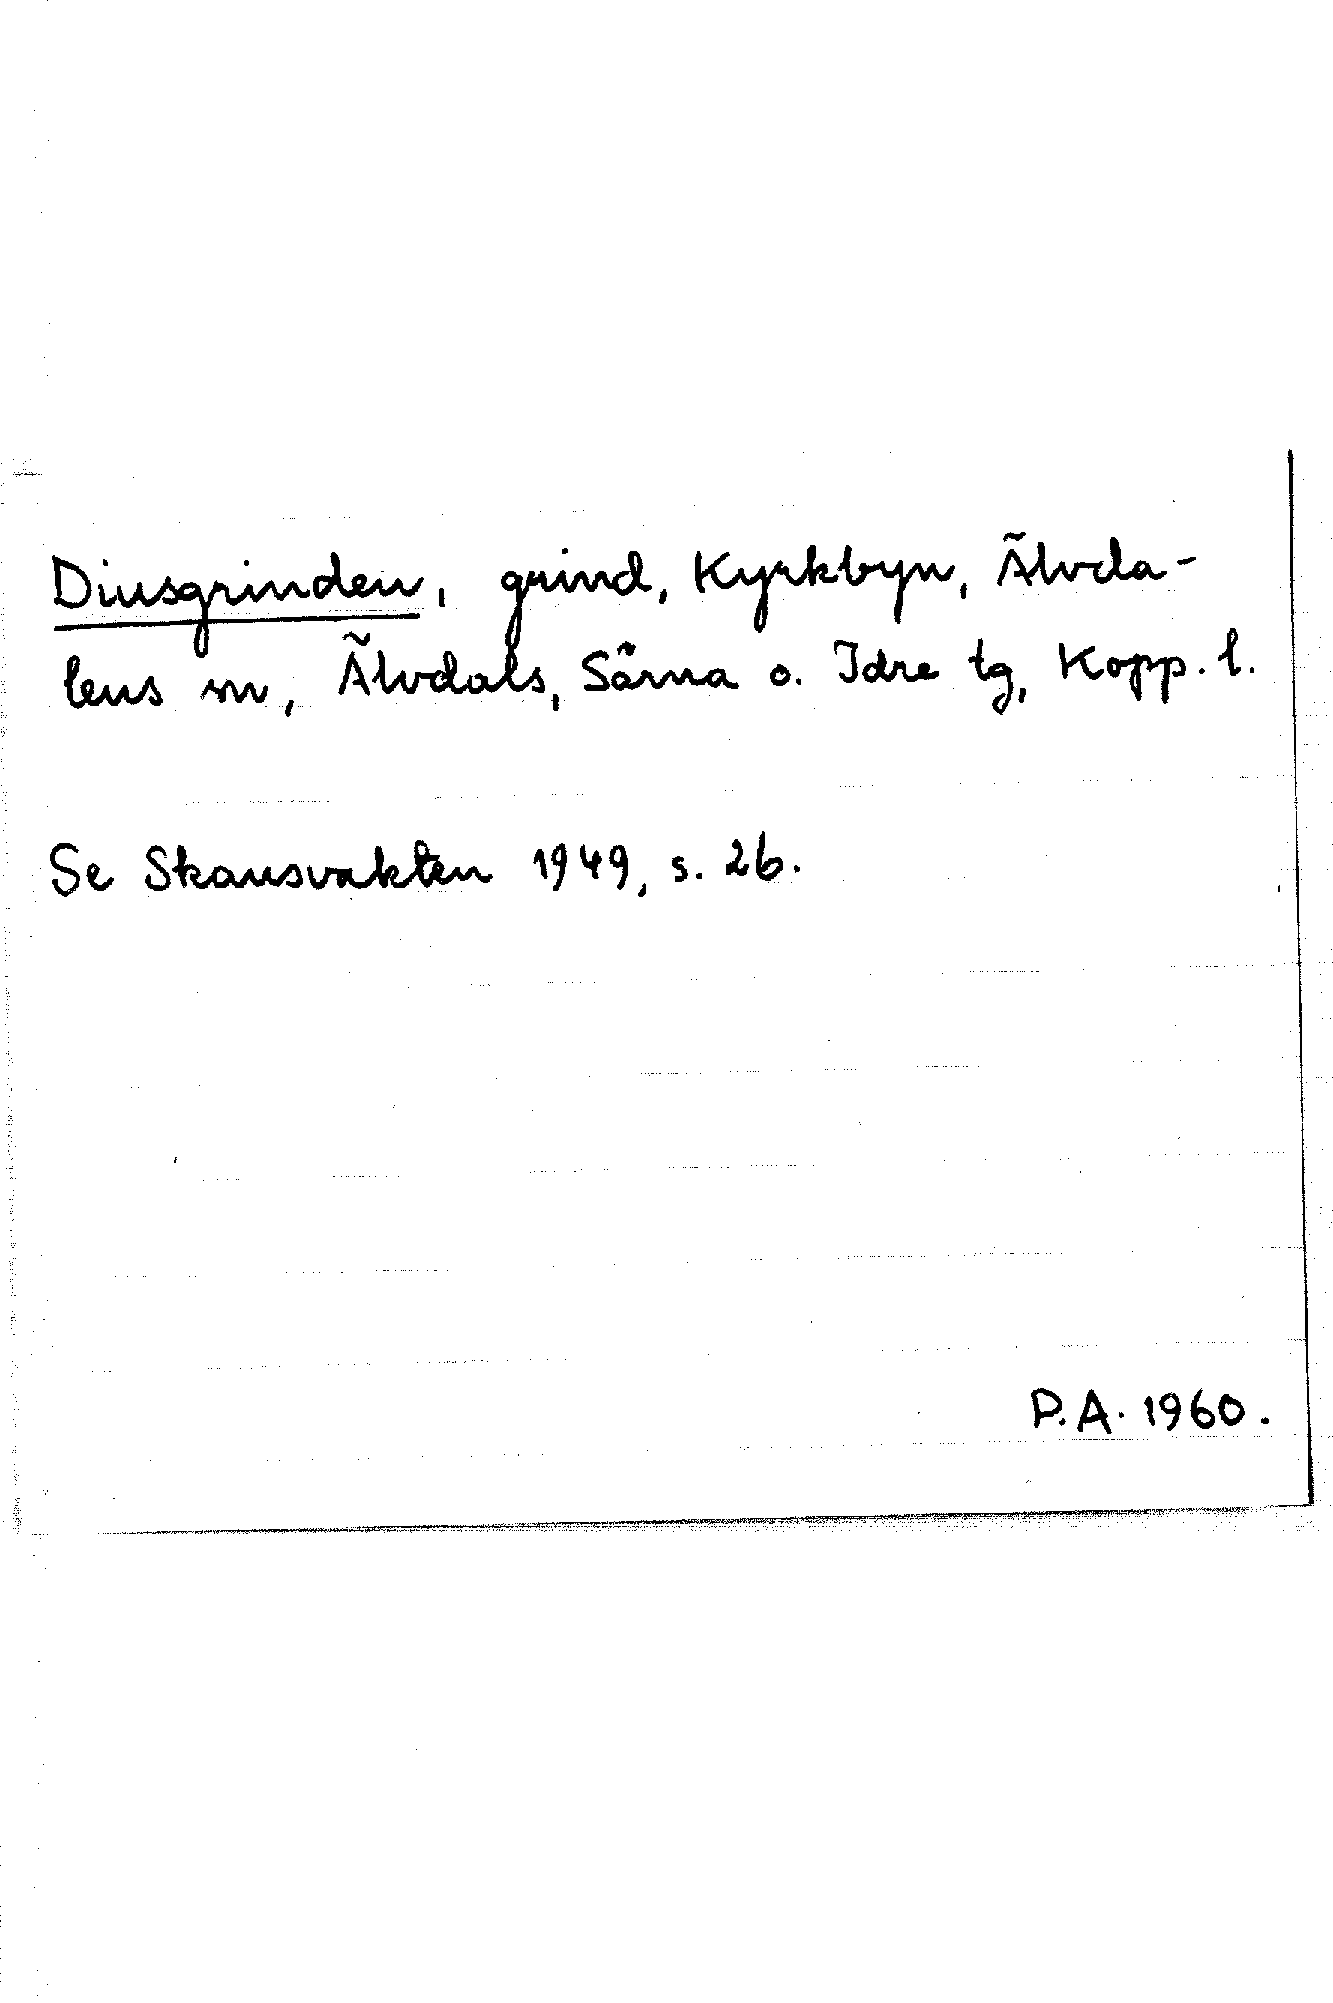 Diusgrinden, grind, Kyrkbyn, Älvda-
lens sn, Älvdals, Särna o. Idre tg, Kopp. l.
Se Skansvakten 1949, s. 26.
P.A. 1960.